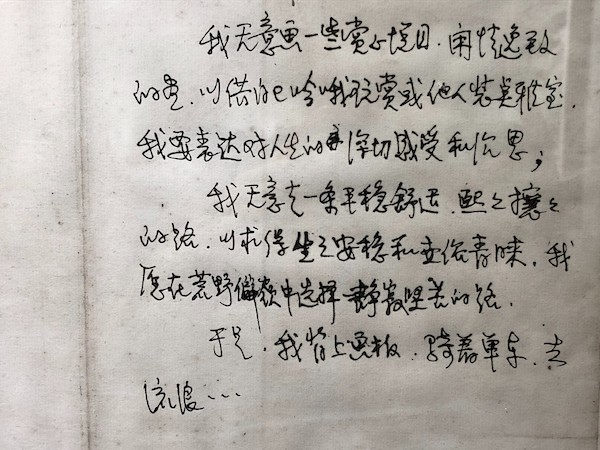 我无意画一些赏心悦目、闲情逸致
的画,以供自己吟哦玩赏或他人装点雅室,
我要表达对人生的深切感受和沉思;
我无意走一条平稳舒适、熙々攘々
的路,以求得生之安稳和世俗青睐,我
愿在荒野僻壤中选择静寂坚苦的路。
于是,我背上画板,骑着单车,去
流浪...